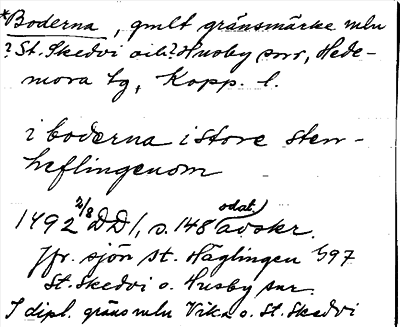 *Boderna, gmlt gränsmärke mln
?St. Skedvi och? Husby snr, Hede-
mora tg, Kopp. l.
i boderna i store sten-
heflingenom
1492 2/8 DD1, s. 148 odat. avskr.
Jfr. sjön St. Häglingen G97
St. Skedvi o. Husby snr.
I dipl. gräns mln Vika o. St. Skedvi